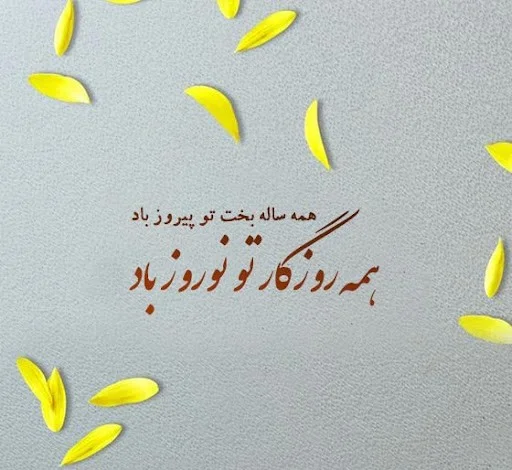 همه ساله بخت تو پیروز باد
همه روزگار تو نوروز باد